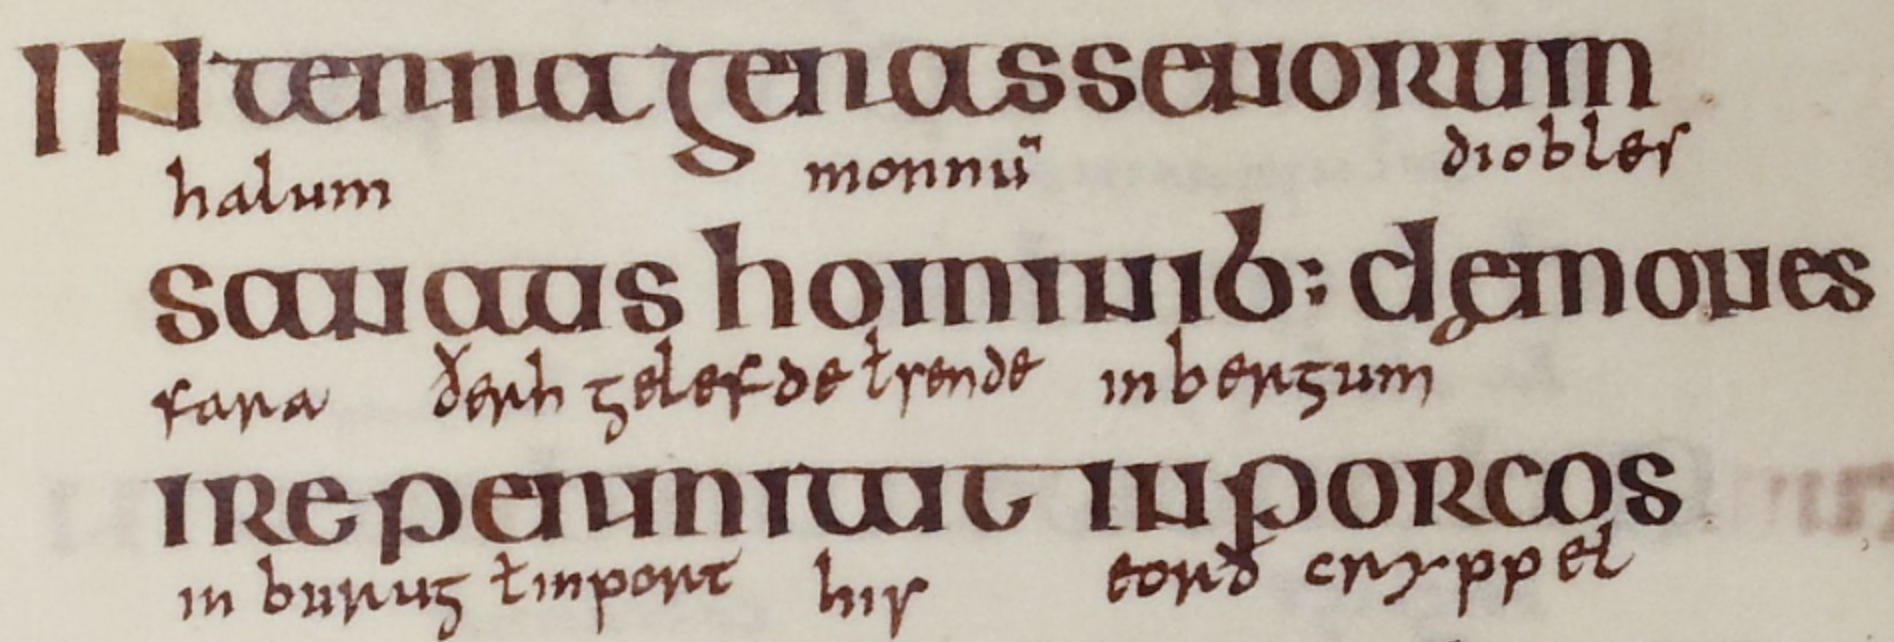 IN terra gerasseNORum
halum monnū diobles
saNatis homiNib: demoNes
fara ðerh gelefde ł sende in bergum
IRe peRmittit IN poRcos
in burug ł in port his eorð cryppel